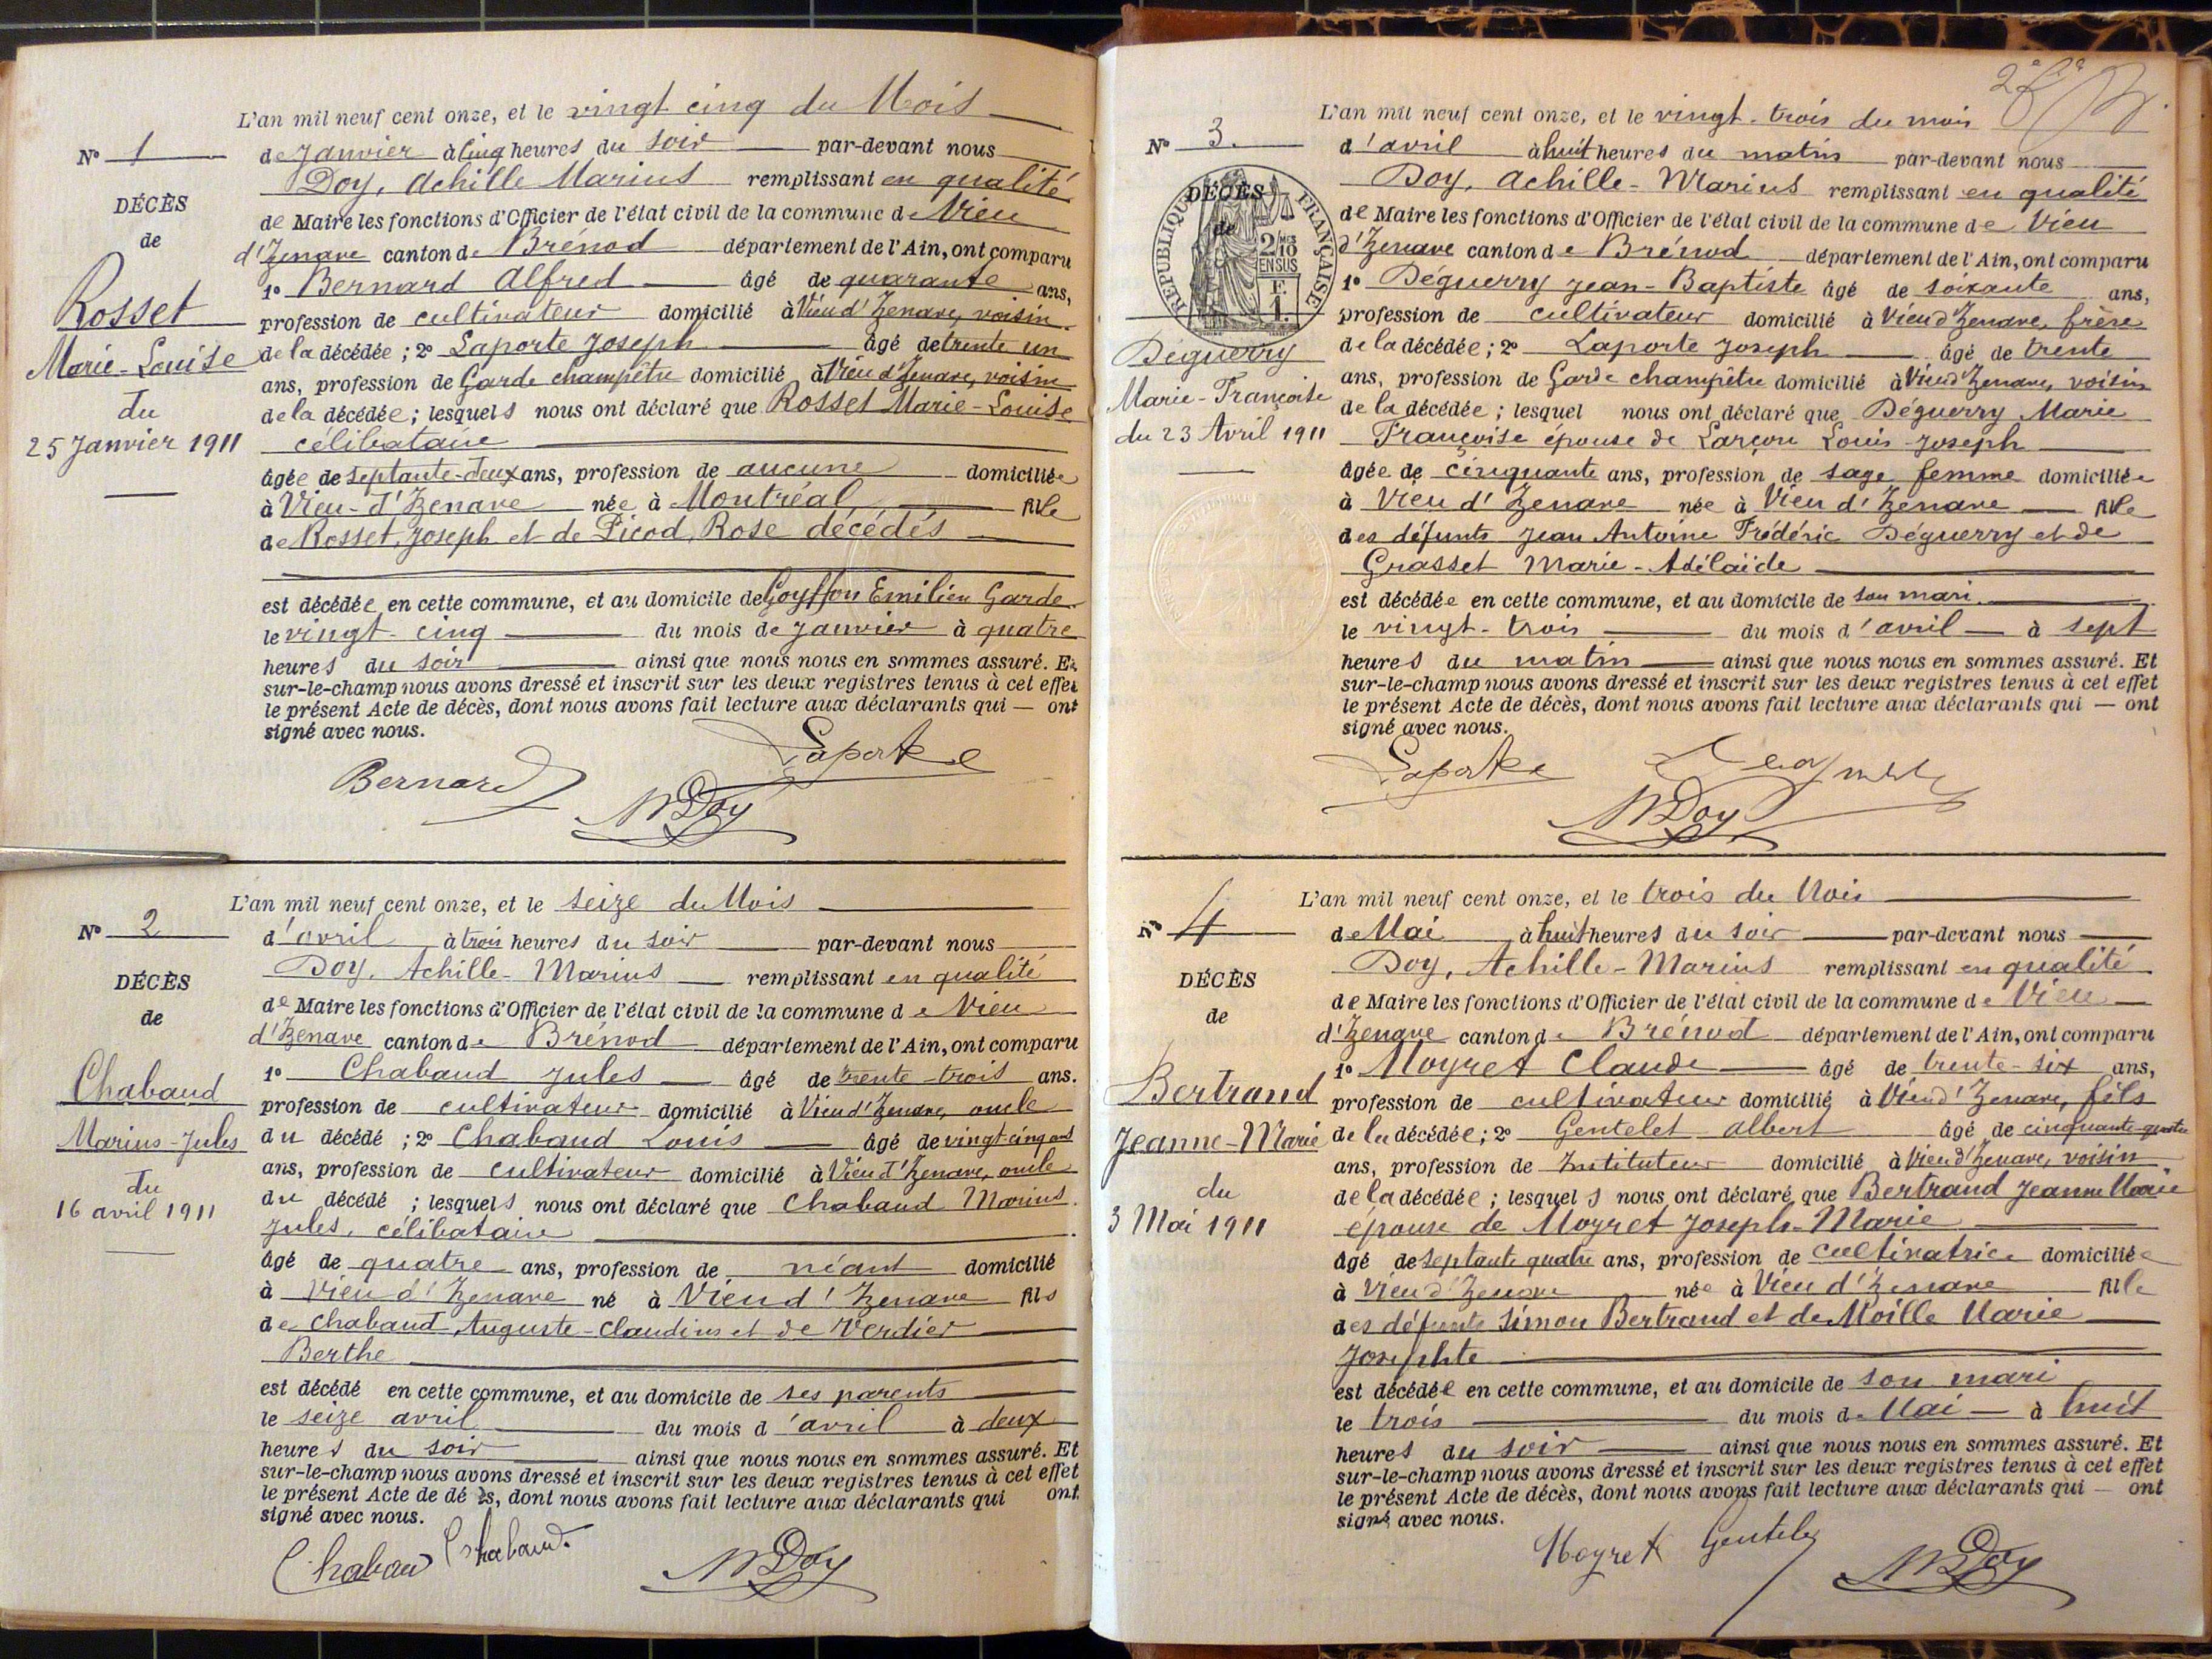 L'an mil neuf cent onze, et le vingt cinq du Mois
N° 1
de Janvier à cinq heures du soir par-devant nous
Doy, Achille Marius remplissant en qualité
DÉCÈS
de Maire les fonctions d'Officier de l'état civil de la commune de Vieu
de
d'Izenave canton de Brénod département de l'Ain, ont comparu
Rosset
1° Bernard Alfred âgé de quarante ans,
profession de cultivateur domicilié à Vieu d'Izenave, voisin
Marie-Louise
de la décédée ; 2° Laporte Joseph âgé de trente un
ans, profession de Garde champêtre domicilié à Vieu d'Izenave, voisin
du
de la décédée ; lesquels nous ont déclaré que Rosset Marie-Louise
25 Janvier 1911
célibataire
âgée de septante-deux ans, profession de aucune domiciliée
à Vieu-d'Izenave née à Montréal fille
de Rosset, Joseph et de Picod, Rose décédés
est décédée en cette commune, et au domicile de Goyffon Emilien Garde
le vingt-cinq du mois de Janvier à quatre
heures du soir ainsi que nous nous en sommes assuré. Et
sur-le-champ nous avons dressé et inscrit sur les deux registres tenus à cet effet
le présent Acte de décès, dont nous avons fait lecture aux déclarants qui — ont
signé avec nous.
Laporte
Bernard
MDoy
L'an mil neuf cent onze, et le seize du Mois
N° 2
d'avril à trois heures du soir par-devant nous
Doy, Achille-Marius remplissant en qualité
DÉCÈS
de Maire les fonctions d'Officier de l'état civil de la commune de Vieu
de
d'Izenave canton de Brénod département de l'Ain, ont comparu
Chabaud
1° Chabaud Jules âgé de trente-trois ans.
profession de cultivateur domicilié à Vieu d'Izenave, oncle
Marius-Jules
du décédé ; 2° Chabaud Louis âgé de vingt-cinq ans
ans, profession de cultivateur domicilié à Vieu d'Izenave, oncle
du
16 avril 1911
du décédé ; lesquels nous ont déclaré que Chabaud Marius
Jules, célibataire
âgé de quatre ans, profession de néant domicilié
à Vieu d'Izenave né à Vieu d'Izenave fils
de Chabaud Auguste-Claudius et de Verdier
Berthe
est décédé en cette commune, et au domicile de ses parents
le seize avril du mois d'avril à deux
heures du soir ainsi que nous nous en sommes assuré. Et
sur-le-champ nous avons dressé et inscrit sur les deux registres tenus à cet effet
le présent Acte de dé ès, dont nous avons fait lecture aux déclarants qui ont
signé avec nous.
Chabau Chabaud.
MDoy
L'an mil neuf cent onze, et le vingt-trois du mois
N° 3.
d'avril à huit heures du matin par-devant nous
Doy, Achille-Marius remplissant en qualité
DÉCÈS
de
RÉPUBLIQUE FRANÇAISE
2/10 MES
EN SUS
F.
1.
de Maire les fonctions d'Officier de l'état civil de la commune de Vieu
d'Izenave canton de Brénod département de l'Ain, ont comparu
1° Déguerry Jean-Baptiste âgé de soixante ans,
profession de cultivateur domicilié à Vieu d'Izenave, frère
Déguerry
de la décédée ; 2° Laporte Joseph âgé de trente
ans, profession de Garde champêtre domicilié à Vieu d'Izenave, voisin
Marie-Françoise
de la décédée ; lesquel nous ont déclaré que Déguerry Marie
du 23 Avril 1911
Françoise épouse de Larçon Louis Joseph
âgée de cinquante ans, profession de sage femme domiciliée
à Vieu d'Izenave née à Vieu d'Izenave fille
des défunts Jean Antoine Frédéric Déguerry et de
Grasset Marie-Adélaïde
est décédée en cette commune, et au domicile de son mari
le vingt-trois du mois d'avril à sept
heures du matin ainsi que nous nous en sommes assuré. Et
sur-le-champ nous avons dressé et inscrit sur les deux registres tenus à cet effet
le présent Acte de décès, dont nous avons fait lecture aux déclarants qui — ont
signé avec nous.
Laporte
MDoy
L'an mil neuf cent onze, et le trois du Mois
N° 4
de Mai à huit heures du soir par-devant nous
Doy, Achille-Marius remplissant en qualité
DÉCÈS
de Maire les fonctions d'Officier de l'état civil de la commune de Vieu
de
d'Izenave canton de Brénod département de l'Ain, ont comparu
Bertrand
1° Moyret Claude âgé de trente-six ans,
profession de cultivateur domicilié à Vieu d'Izenave, fils
Jeanne-Marie
de la décédée ; 2° Gentelet Albert âgé de cinquante-quatre
ans, profession de Instituteur domicilié à Vieu d'Izenave, voisin
du
de la décédée ; lesquels nous ont déclaré que Bertrand Jeanne Marie
3 Mai 1911
épouse de Moyret Joseph-Marie
âgé de septante quatre ans, profession de cultivatrice domiciliée
à Vieu d'Izenave née à Vieu d'Izenave fille
des défunts Simon Bertrand et de Moille Marie
Josephte
est décédée en cette commune, et au domicile de son mari
le trois du mois de Mai à huit
heures du soir ainsi que nous nous en sommes assuré. Et
sur-le-champ nous avons dressé et inscrit sur les deux registres tenus à cet effet
le présent Acte de décès, dont nous avons fait lecture aux déclarants qui — ont
signé avec nous.
Moyret Gentelet
MDoy